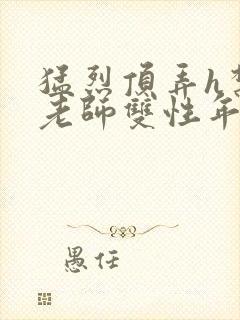 猛烈頂弄h
老師雙性年
愚任